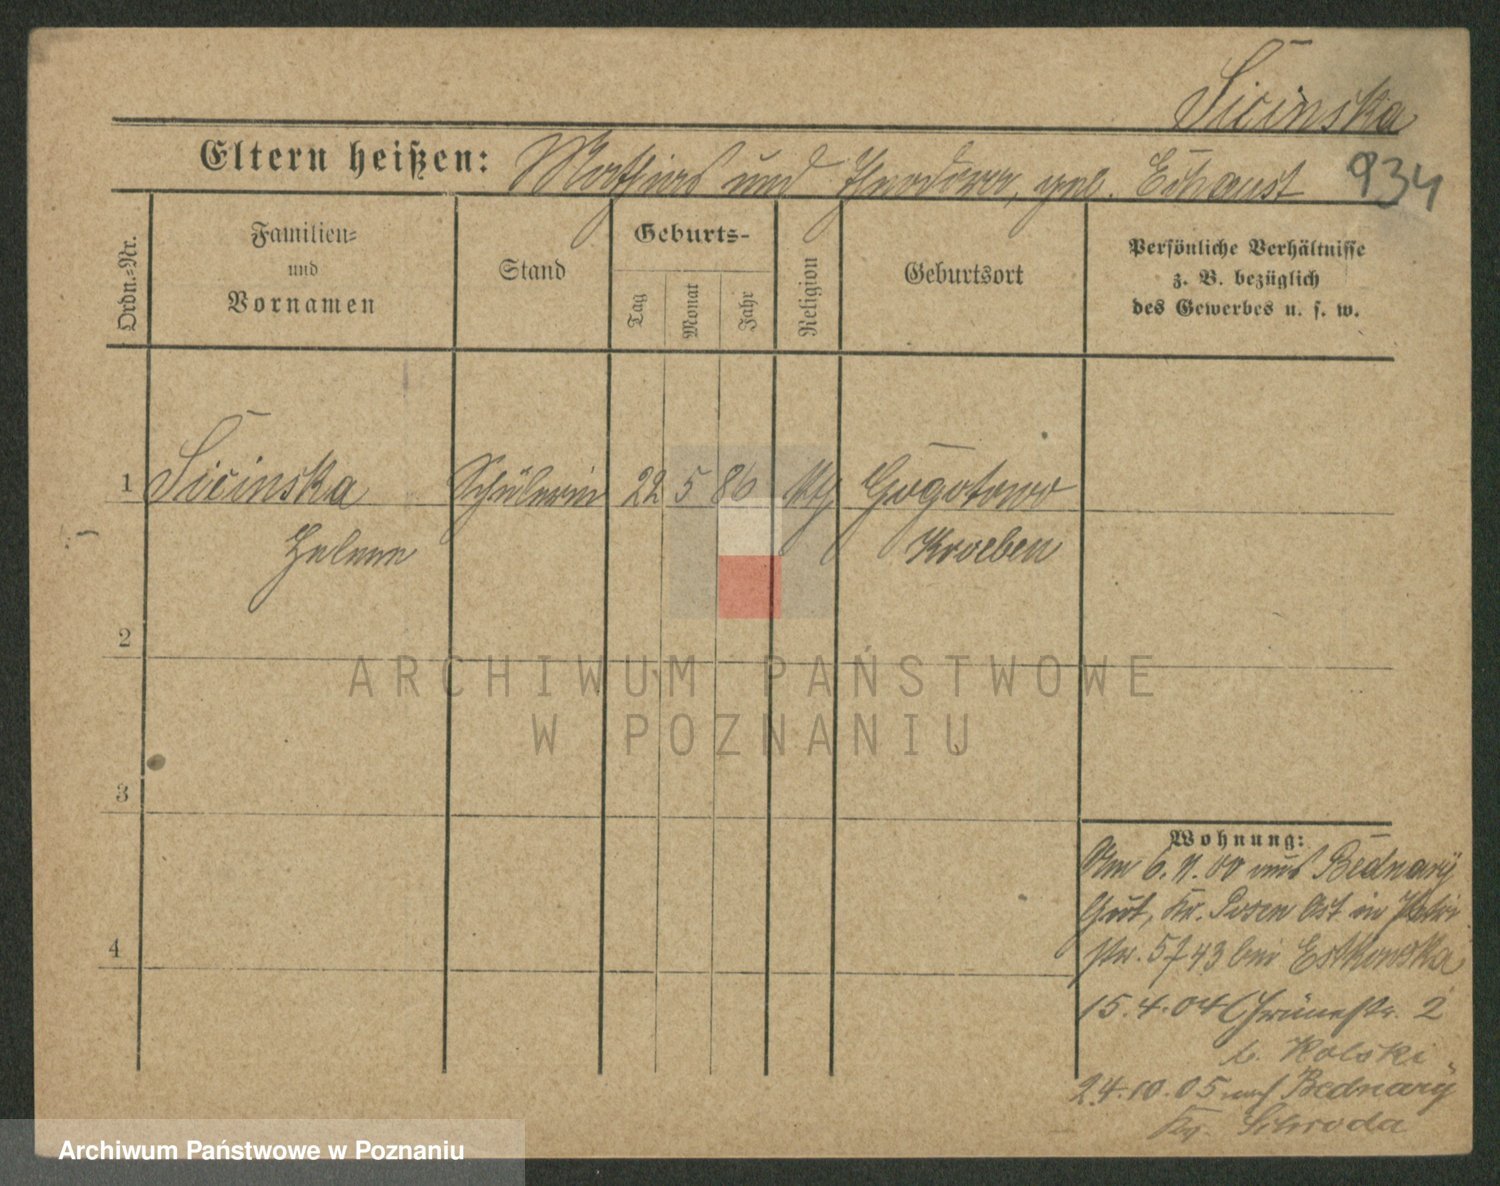 Sicinska
Eltern heißen: Mathias und Theodora, geb. Echaust 934
Ordn.-Nr.
Familien-
und
Vornamen
Stand
Geburts-
Tag
Monat
Jahr
Religion
Geburtsort
Persönliche Verhältnisse
z. B. bezüglich
des Gewerbes u. s. w.
1 Sicinska Schülerin 22 5 86 kth Gogolewo
Helene Kroeben
2
3
4
Wohnung:
Am 6. 11. 00 aus Bednarÿ
Gut, Kr. Posen Ost in Petri
str. 5 bei Estkowska
15.4.04 Grünestr. 2
b. Kolski
24.10.05 nach Bednarÿ
Kr. Schroda
ARCHIWUM PAŃSTWOWE
W POZNANIU
Archiwum Państwowe w Poznaniu